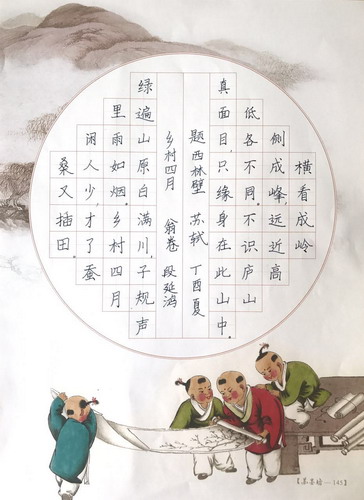 横看成岭
侧成峰,远近高
低各不同。不识庐山
真面目,只缘身在此山中。
题西林壁 苏轼 丁酉夏
乡村四月 翁卷 段延鸿
绿遍山原白满川,子规声
里雨如烟。乡村四月
闲人少,才了蚕
桑又插田。